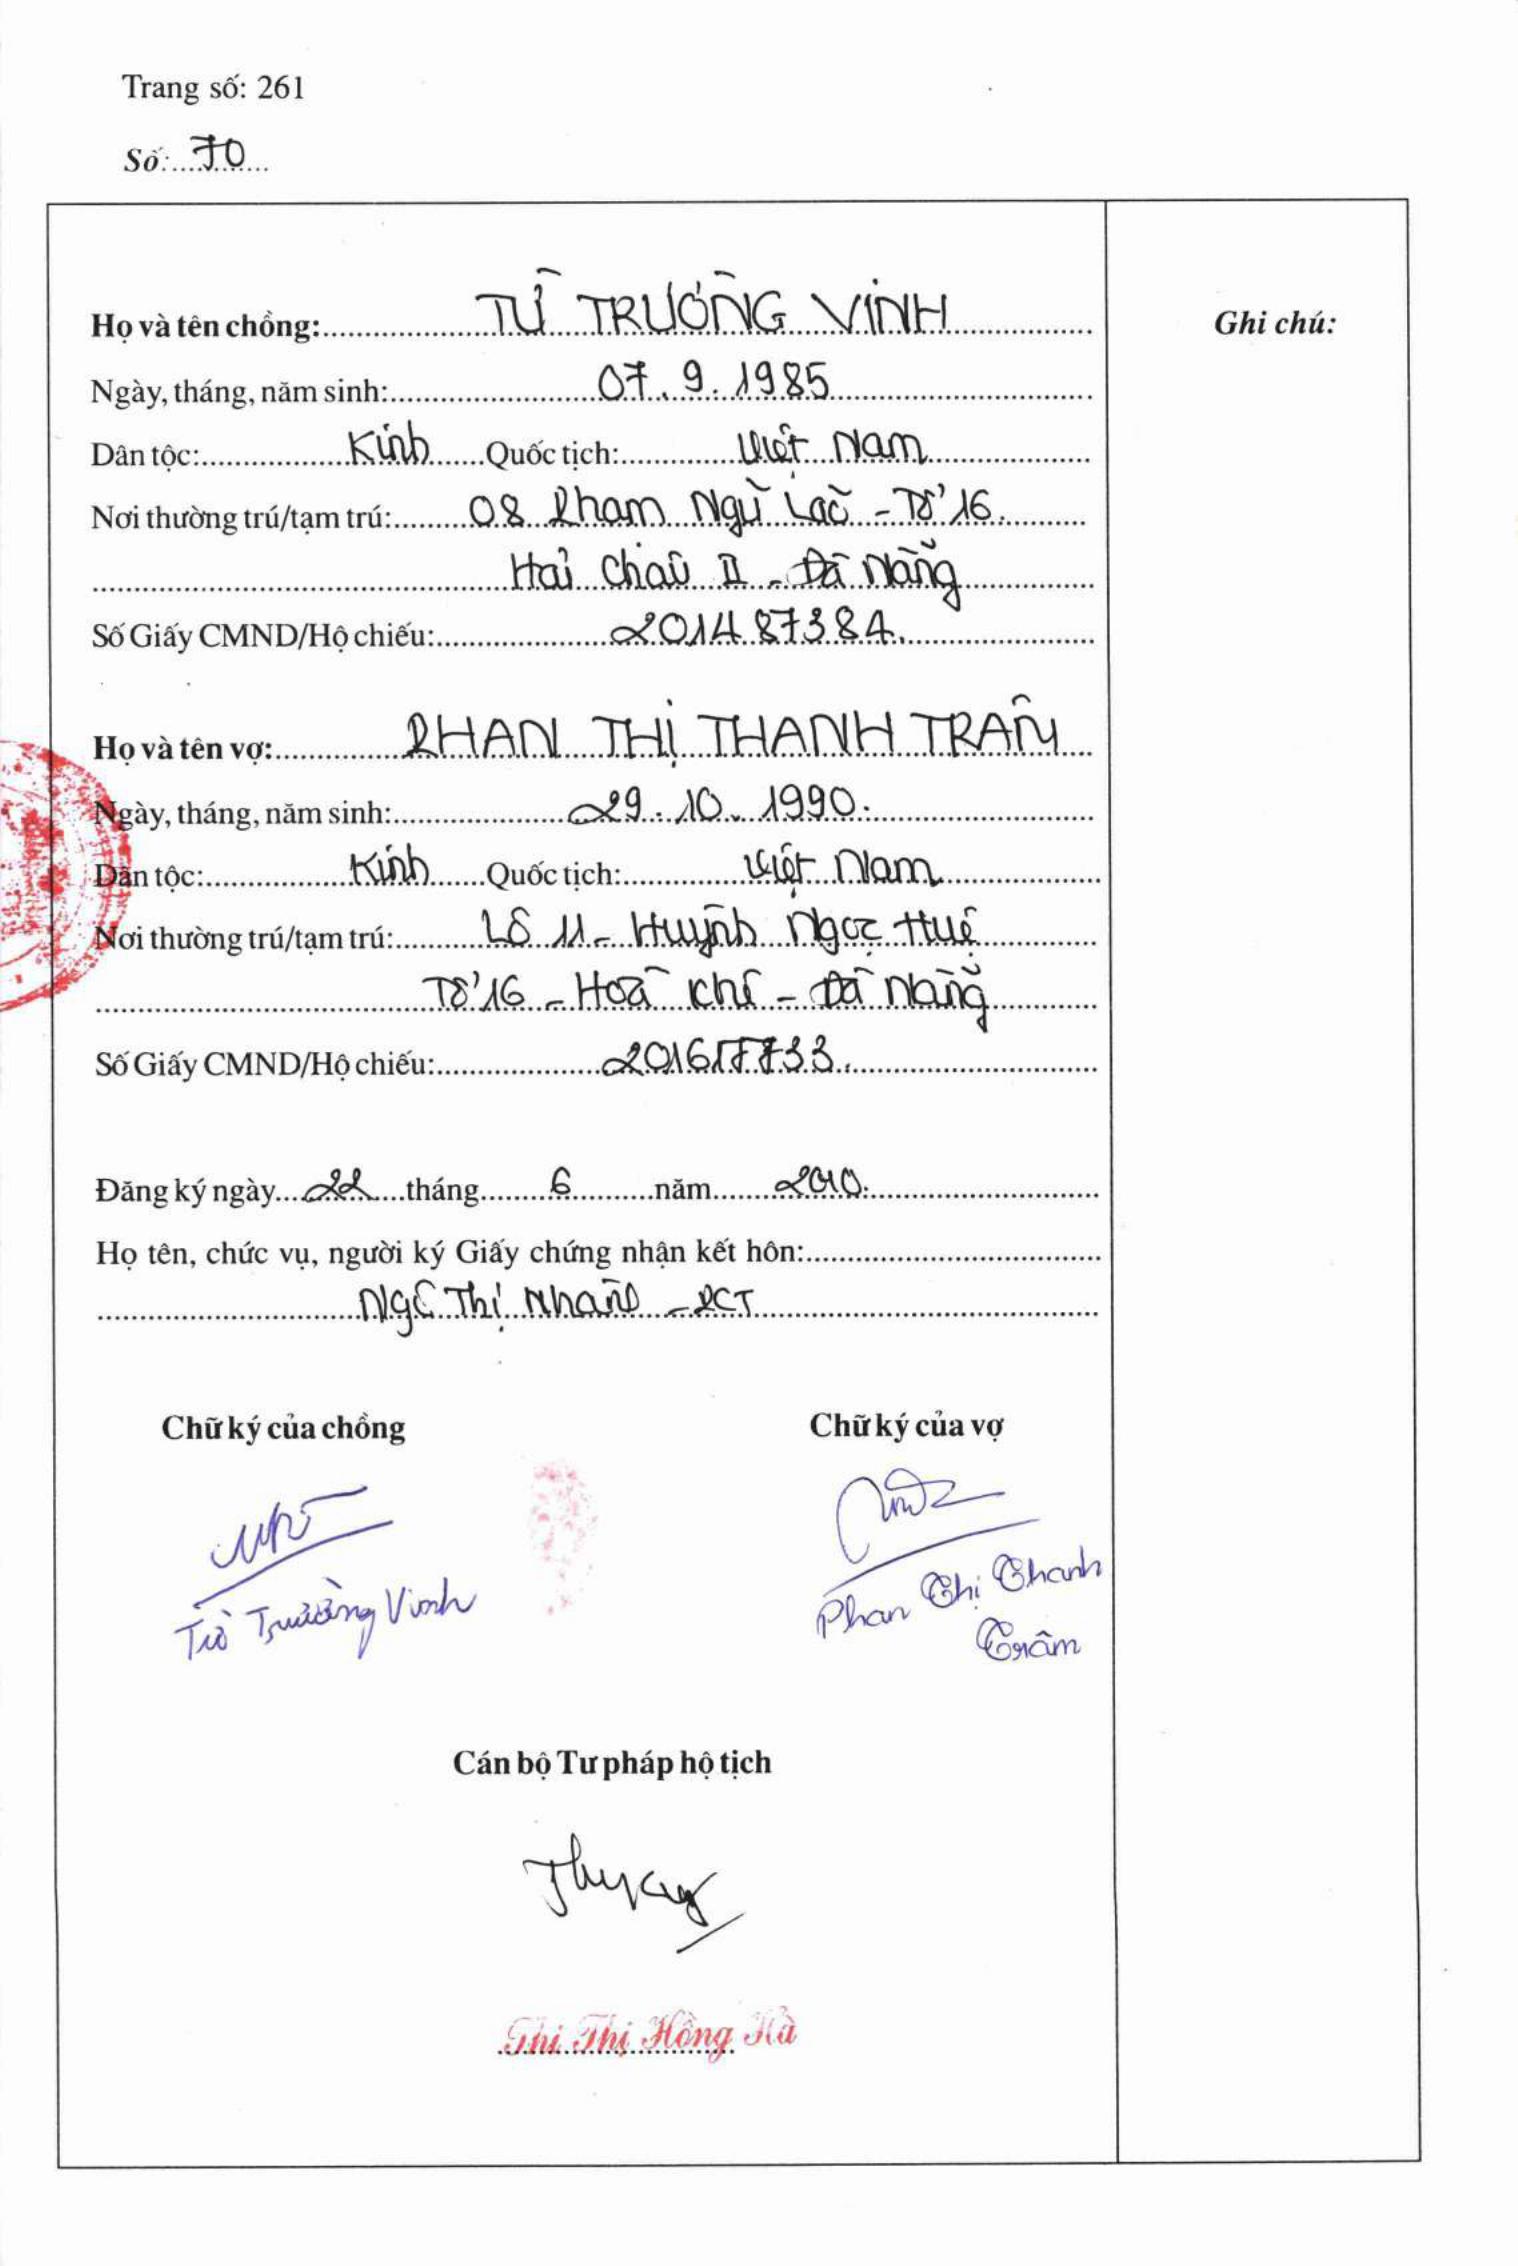 Trang số: 261
Số: 70
Họ và tên chồng: TỪ TRƯỜNG VINH
Ghi chú:
Ngày, tháng, năm sinh: 07.9.1985
Dân tộc: Kinh Quốc tịch: Việt Nam
Nơi thường trú/tạm trú: 08 Phạm Ngũ Lão - Tổ 16
Hải Châu II - Đà Nẵng
Số Giấy CMND/Hộ chiếu: 201487384.
Họ và tên vợ: PHAN THỊ THANH TRÂM
Ngày, tháng, năm sinh: 29.10.1990.
Dân tộc: Kinh Quốc tịch: Việt Nam
Nơi thường trú/tạm trú: Lô 11 - Huỳnh Ngọc Huệ
Tổ 16 - Hoà Khê - Đà Nẵng
Số Giấy CMND/Hộ chiếu:
Đăng ký ngày 22 tháng 6 năm 2010.
Họ tên, chức vụ, người ký Giấy chứng nhận kết hôn:
Ngô Thị Nhàn - PCT
Chữ ký của chồng Chữ ký của vợ
Từ Trường Vinh
Phan Thị Thanh
Trâm
Cán bộ Tư pháp hộ tịch
Thi Thị Hồng Hà